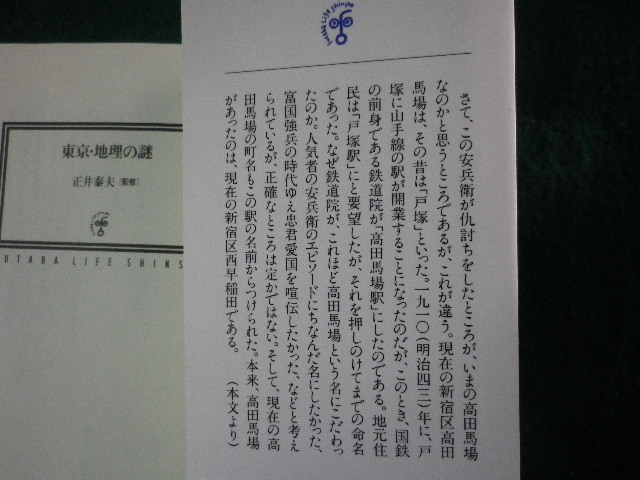 東京・地理の謎
正井泰夫[監修]
UTABA LIFE SHINS
Futaba Life Shinsho
さて、この安兵衛が仇討ちをしたところが、いまの高田馬場
なのかと思うところであるが、これが違う。現在の新宿区高田
馬場は、その昔は「戸塚」といった。一九一〇(明治四三)年に、戸
塚に山手線の駅が開業することになったのだが、このとき、国鉄
の前身である鉄道院が「高田馬場駅」にしたのである。地元住
民は「戸塚駅」にと要望したが、それを押しのけてまでの命名
であった。なぜ鉄道院が、これほど高田馬場という名にこだわっ
たのか。人気者の安兵衛のエピソードにちなんだ名にしたかった、
富国強兵の時代ゆえ忠君愛国を喧伝したかった、などと考え
られているが、正確なところは定かではない。そして、現在の高
田馬場の町名もこの駅の名前からつけられた。本来、高田馬場
があったのは、現在の新宿区西早稲田である。
(本文より)